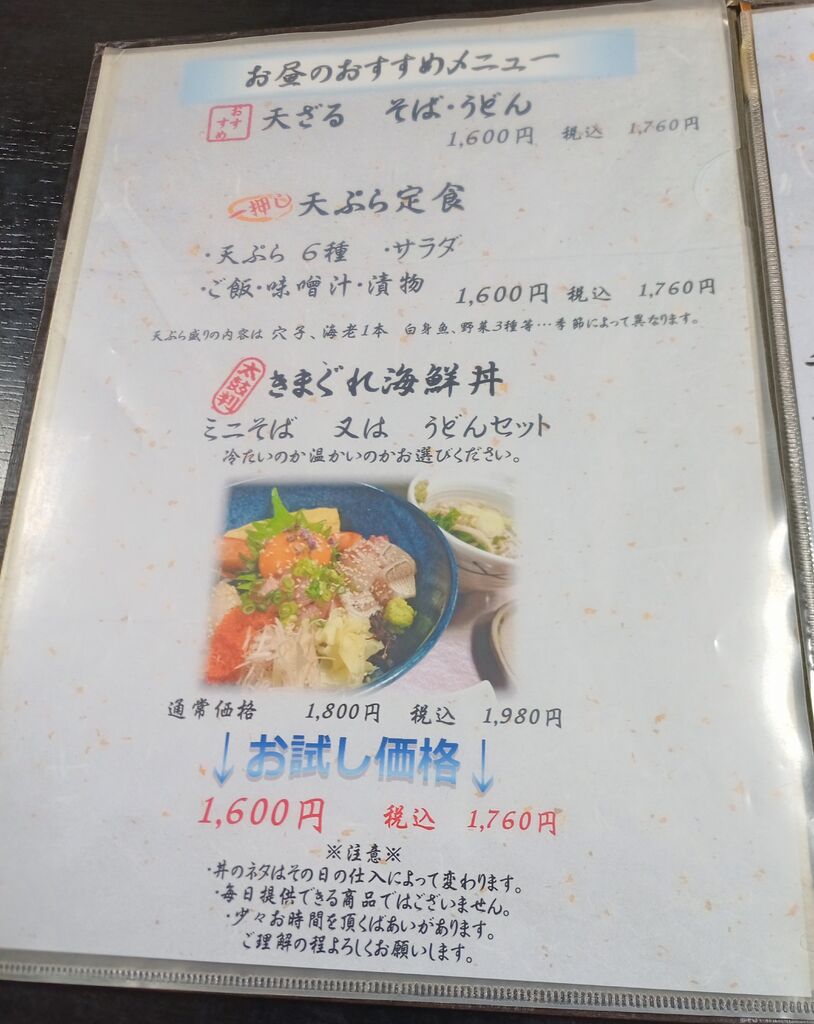 お昼のおすすめメニュー
おすすめ 天ざる そば・うどん
1,600円 税込 1,760円
一押し 天ぷら定食
・天ぷら 6種 ・サラダ
・ご飯・味噌汁・漬物 1,600円 税込 1,760円
天ぷら盛りの内容は 穴子、海老1本 白身魚、野菜3種等…季節によって異なります。
太鼓判 きまぐれ海鮮丼
ミニそば 又は うどんセット
冷たいのか温かいのかお選びください。
通常価格 1,800円 税込 1,980円
↓お試し価格↓
1,600円 税込 1,760円
※注意※
・丼のネタはその日の仕入によって変わります。
・毎日提供できる商品ではございません。
・少々お時間を頂くばあいがあります。
ご理解の程よろしくお願いします。